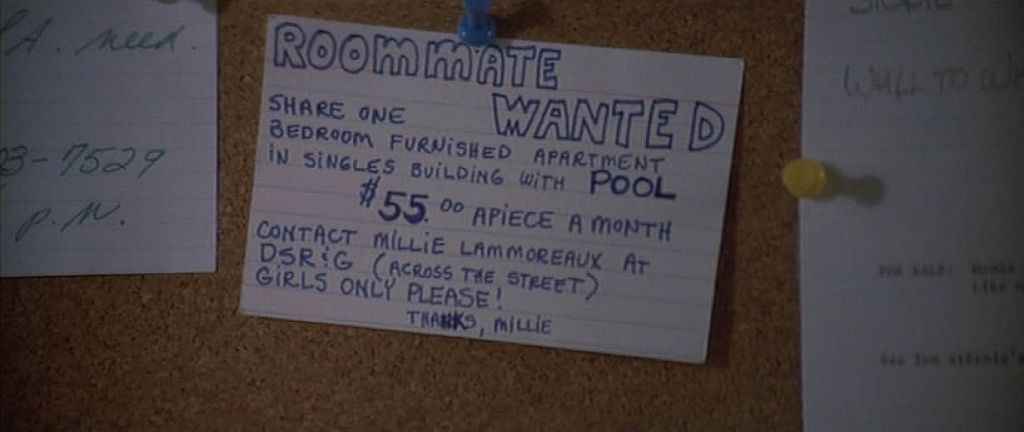 A. need
3-7529
p.m.
ROOMMATE
WANTED
SHARE ONE
BEDROOM FURNISHED APARTMENT
IN SINGLES BUILDING WITH POOL
$55.00 APIECE A MONTH
CONTACT MILLIE LAMMOREAUX AT
DSR&G (ACROSS THE STREET)
GIRLS ONLY PLEASE!
THANKS, MILLIE
WALL TO
FOR SALE: